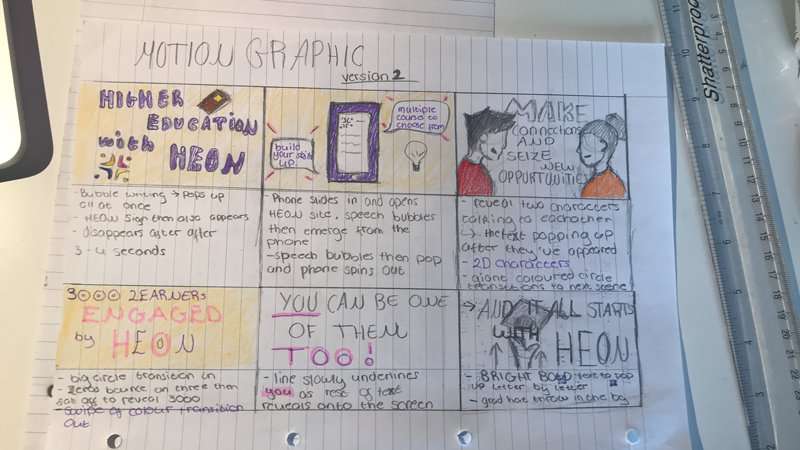 MOTION GRAPHIC
version 2
HIGHER
EDUCATION
with
HEON
- Bubble writing → pops up
all at once
- HEON sign then also appears
- disappears after after
3-4 seconds
build
your skills
UP!
multiple
courses to
choose from
- Phone slides in and opens
HEON site, speech bubbles
then emerge from the
phone
- speech bubbles then pop
and phone spins out
MAKE
connections
AND
SEIZE
NEW
OPPURTUNITIES
- reveal two characters
talking to eachother
↳ the text popping up
after they've appeared
- 2D characters
- giant coloured circle
transitions to next scene
3000 LEARNERS
ENGAGED
by HEON
- big circle transition in
- zeros bounce on three then
off to reveal 3000
- swipe of colour transition
out
YOU CAN BE ONE
OF THEM
TOO!
- line slowly underlines
you as rest of text
reveals onto the screen
→ AND IT ALL STARTS
WITH
HEON
- BRIGHT BOLD text to pop
up letter by letter
- grad hat throw in the bg
Shatterproof